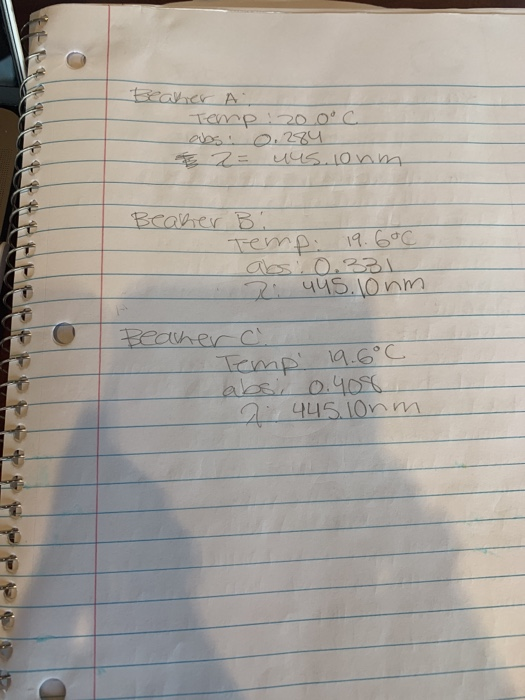 Beaker A:
Temp: 20.0°C
abs: 0.284
λ= 445.10nm
Beaker B:
Temp: 19.6°C
abs: 0.331
λ: 445.10nm
Beaker C:
Temp: 19.6°C
abs:
λ: 445.10nm